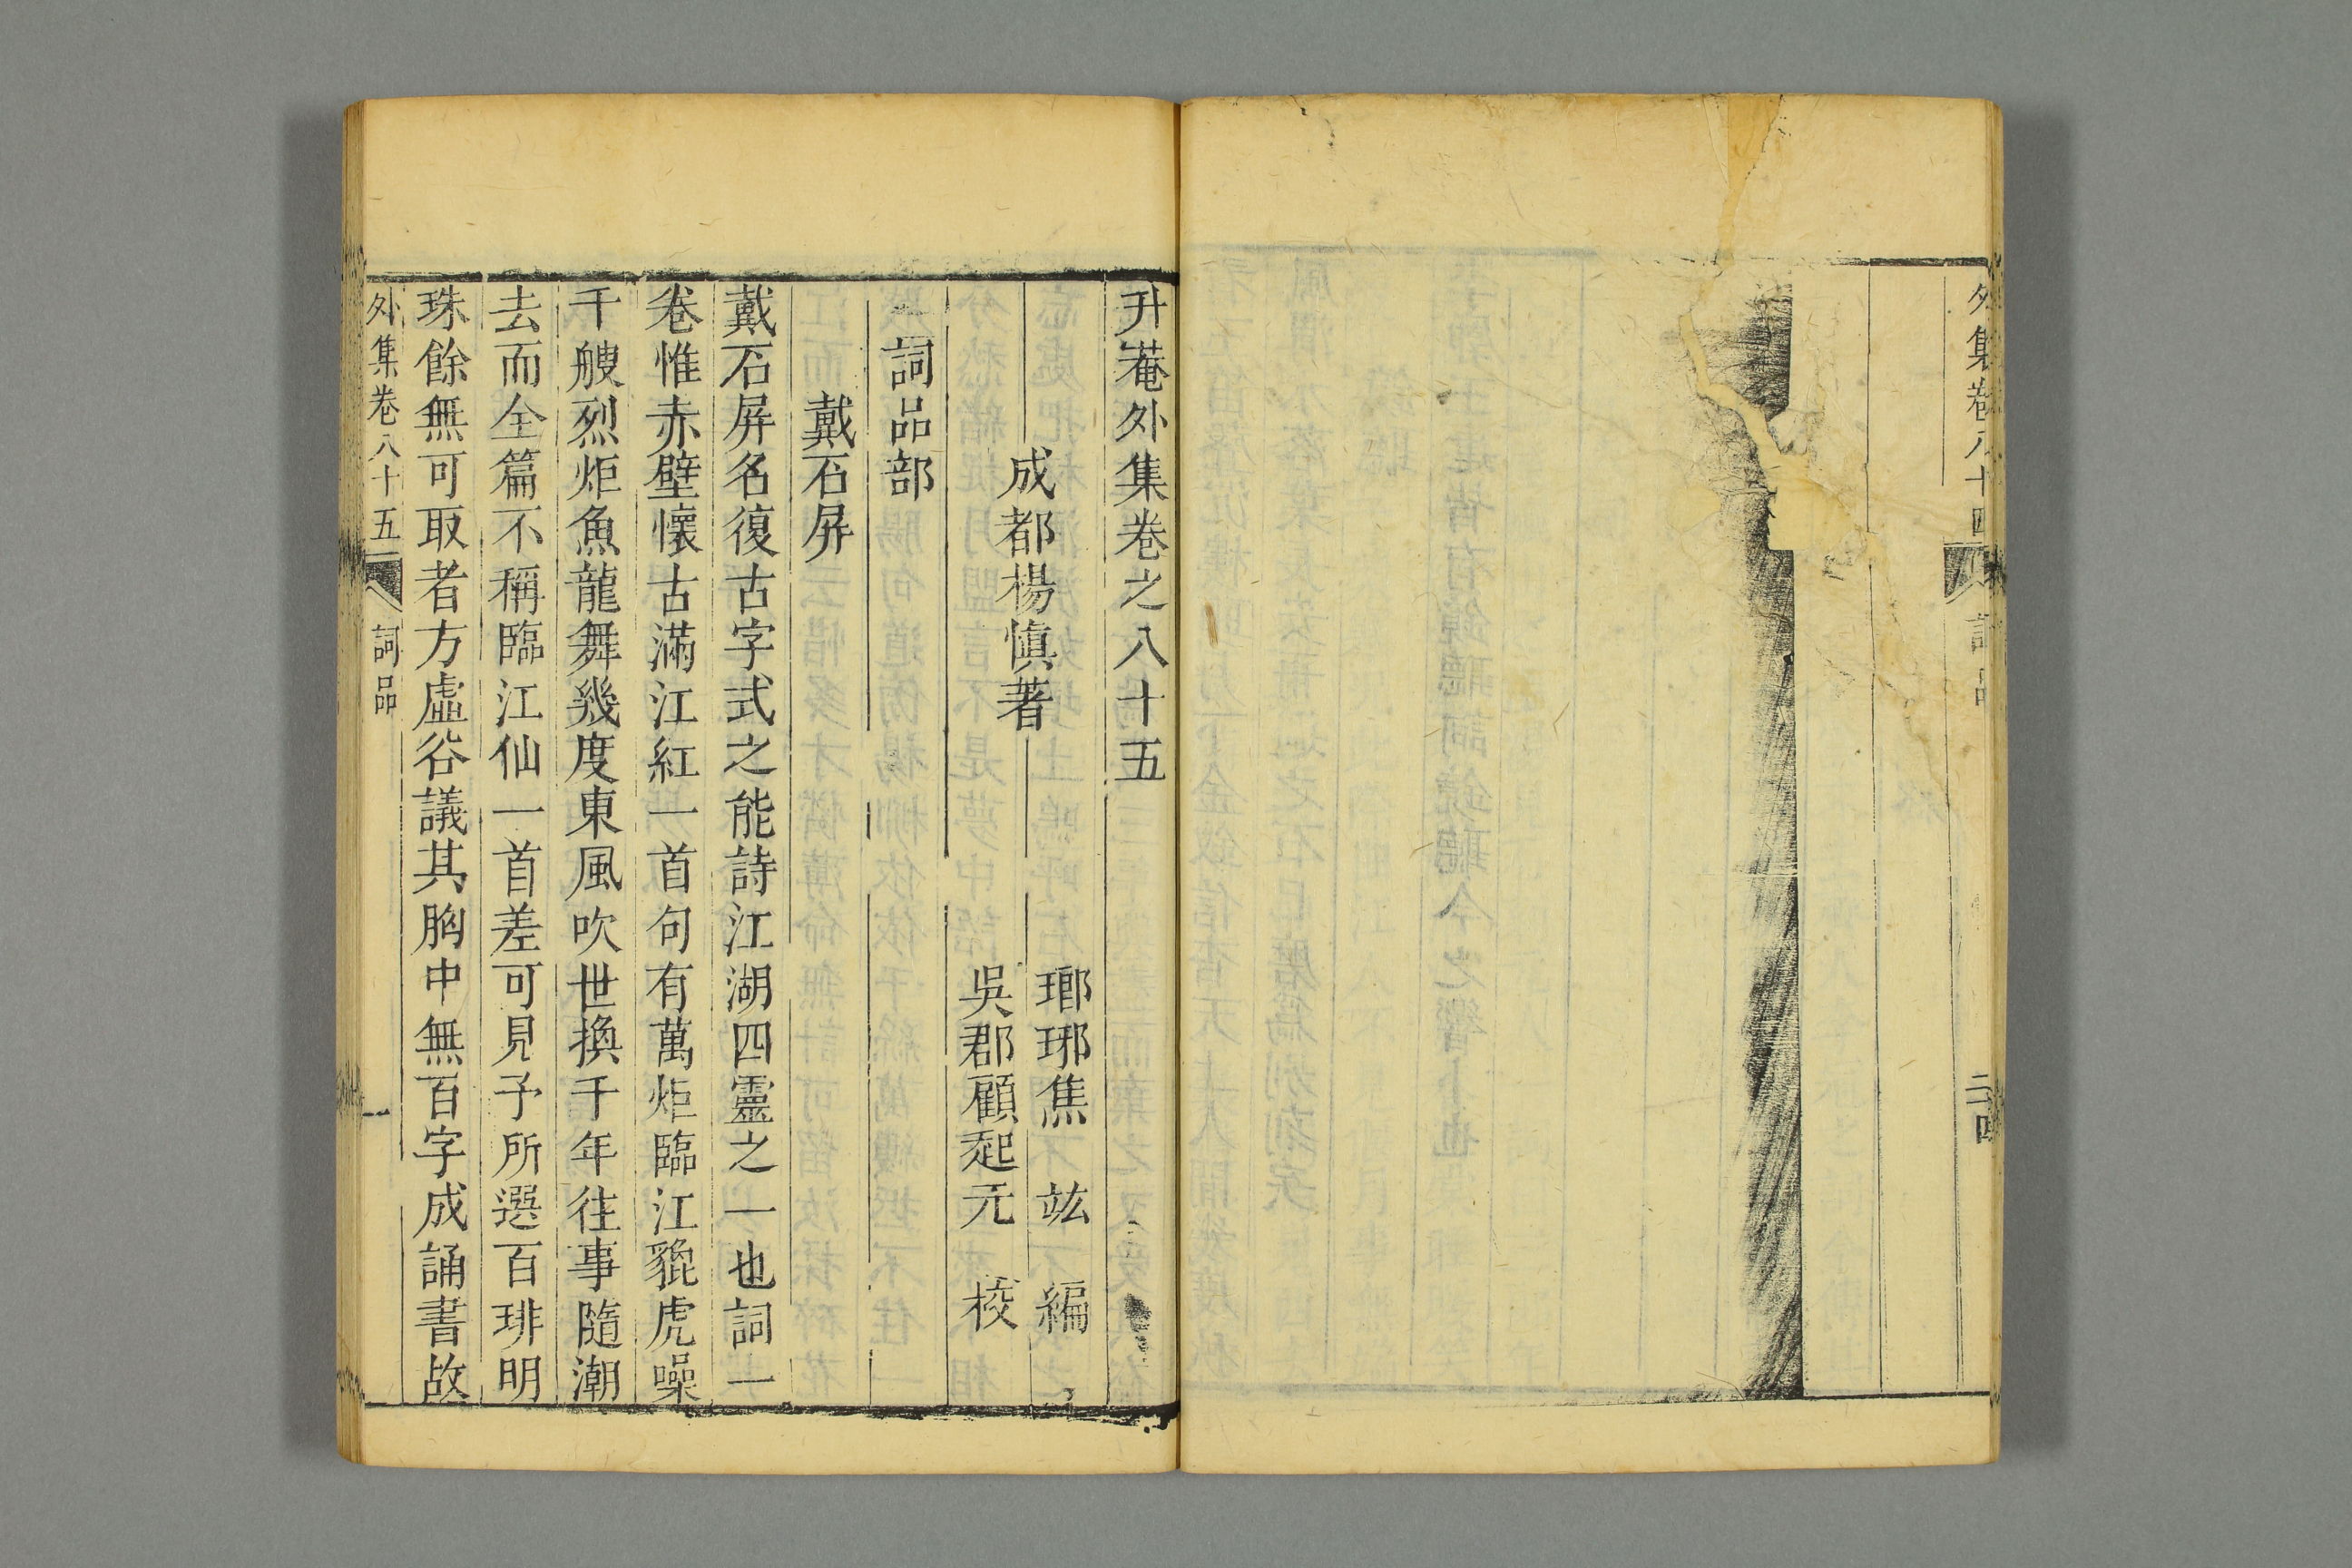 外集卷八十四
詞品
二四
升菴外集卷之八十五
成都楊慎著
瑯琊焦竑編
吳郡顧起元校
詞品部
戴石屏
戴石屏名復古字式之能詩江湖四靈之一也詞一
卷惟赤壁懷古滿江紅一首句有萬炬臨江貔虎噪
千艘烈炬魚龍舞幾度東風吹世換千年往事隨潮
去而全篇不稱臨江仙一首差可見予所選百琲明
珠餘無可取者方虛谷議其胸中無百字成誦書故
外集卷八十五
詞品
一